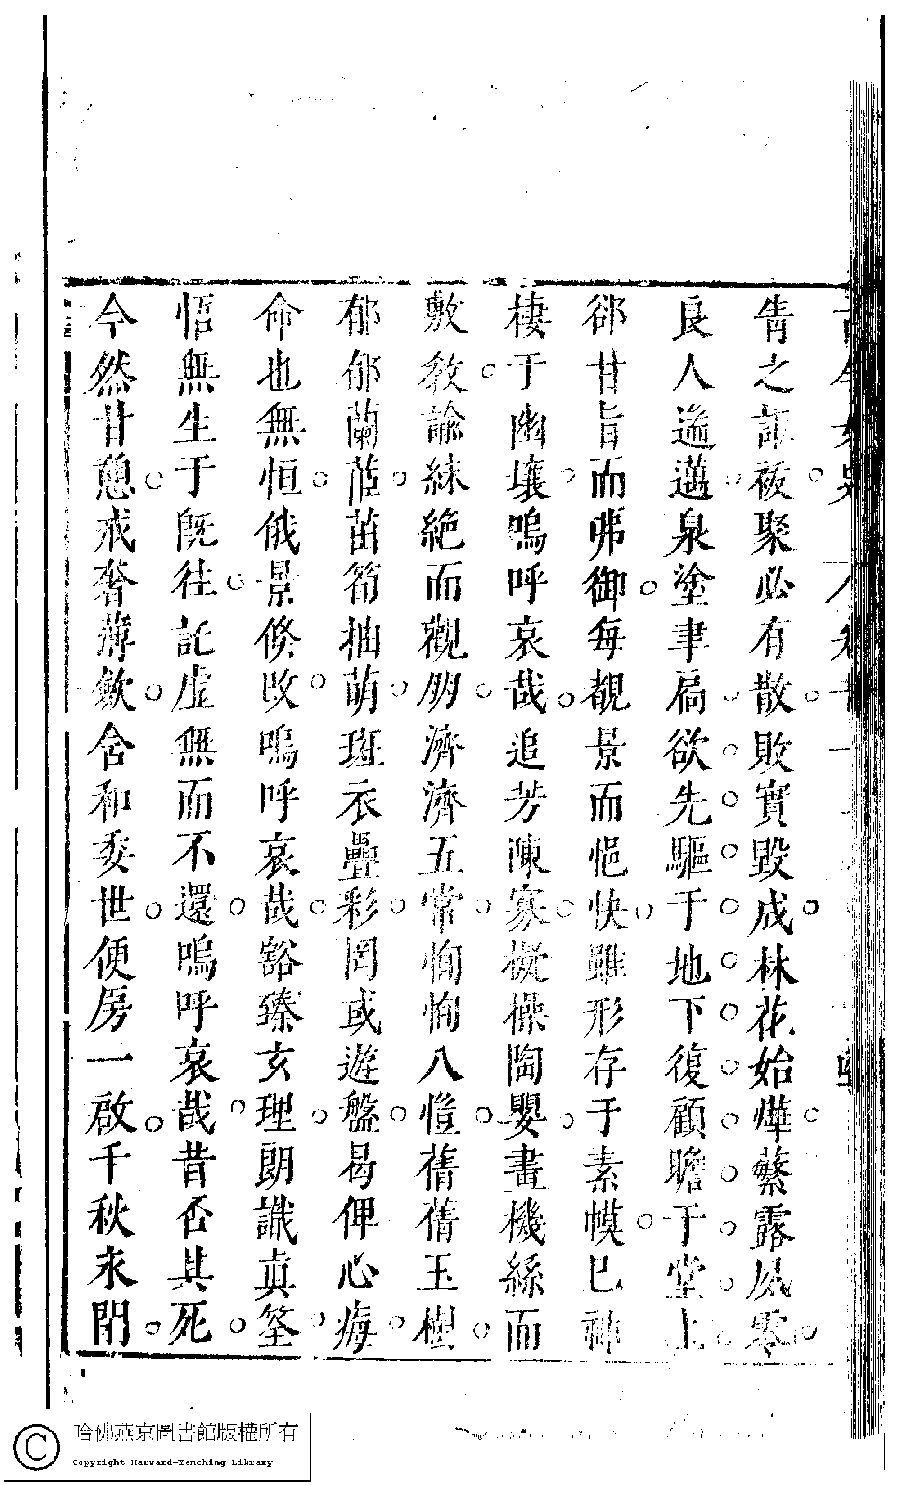 眚之詎祓聚必有散敗實毀成林花始燁蘩露夙零
良人遄邁泉塗聿扃欲先驅于地下復顧瞻于堂上
郤甘旨而弗御每覩景而悒怏雖形存于素幙已神
棲于幽壤嗚呼哀哉追芳陳寡擬操陶嬰晝機絲而
敷教諭綀絶而觀朋濟濟五常恂恂八愷蒨蒨玉樹
郁郁蘭茝茁筍抽萌斑衣疊彩罔或遊盤曷俾心痗
命也無恒俄景倐改嗚呼哀哉豁臻玄理朗識真筌
悟無生于旣往託虛無而不還嗚呼哀哉昔否其死
今然甘憇戒奢薄歛含和委世便房一啟千秋永閉
哈佛燕京圖書館版權所有
Copyright Harvard-Yenching Library